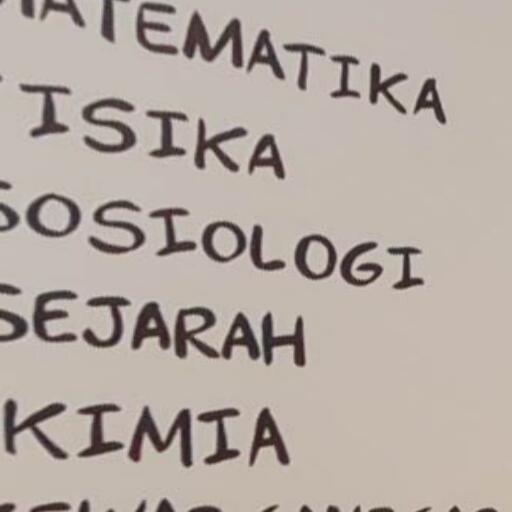 MATEMATIKA
FISIKA
SOSIOLOGI
SEJARAH
KIMIA